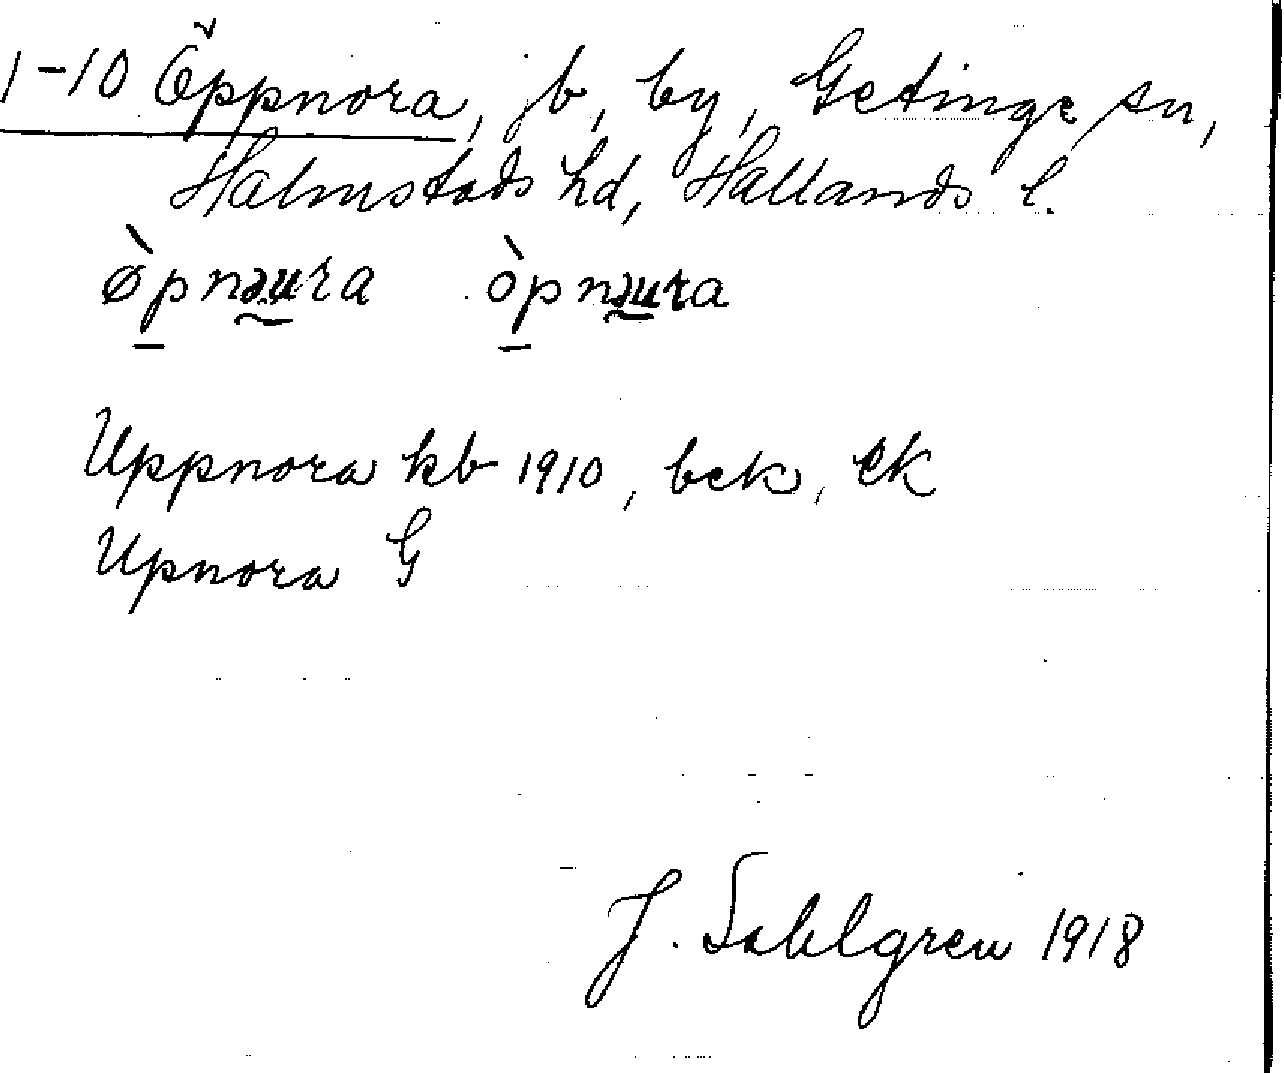 1-10 Öppnora, jb, by, Getinge sn,
Halmstads hd, Hallands l.
ø̀pnəura òpnəura
Uppnora kb 1910, bek, ek
Upnora G
J. Sahlgren 1918